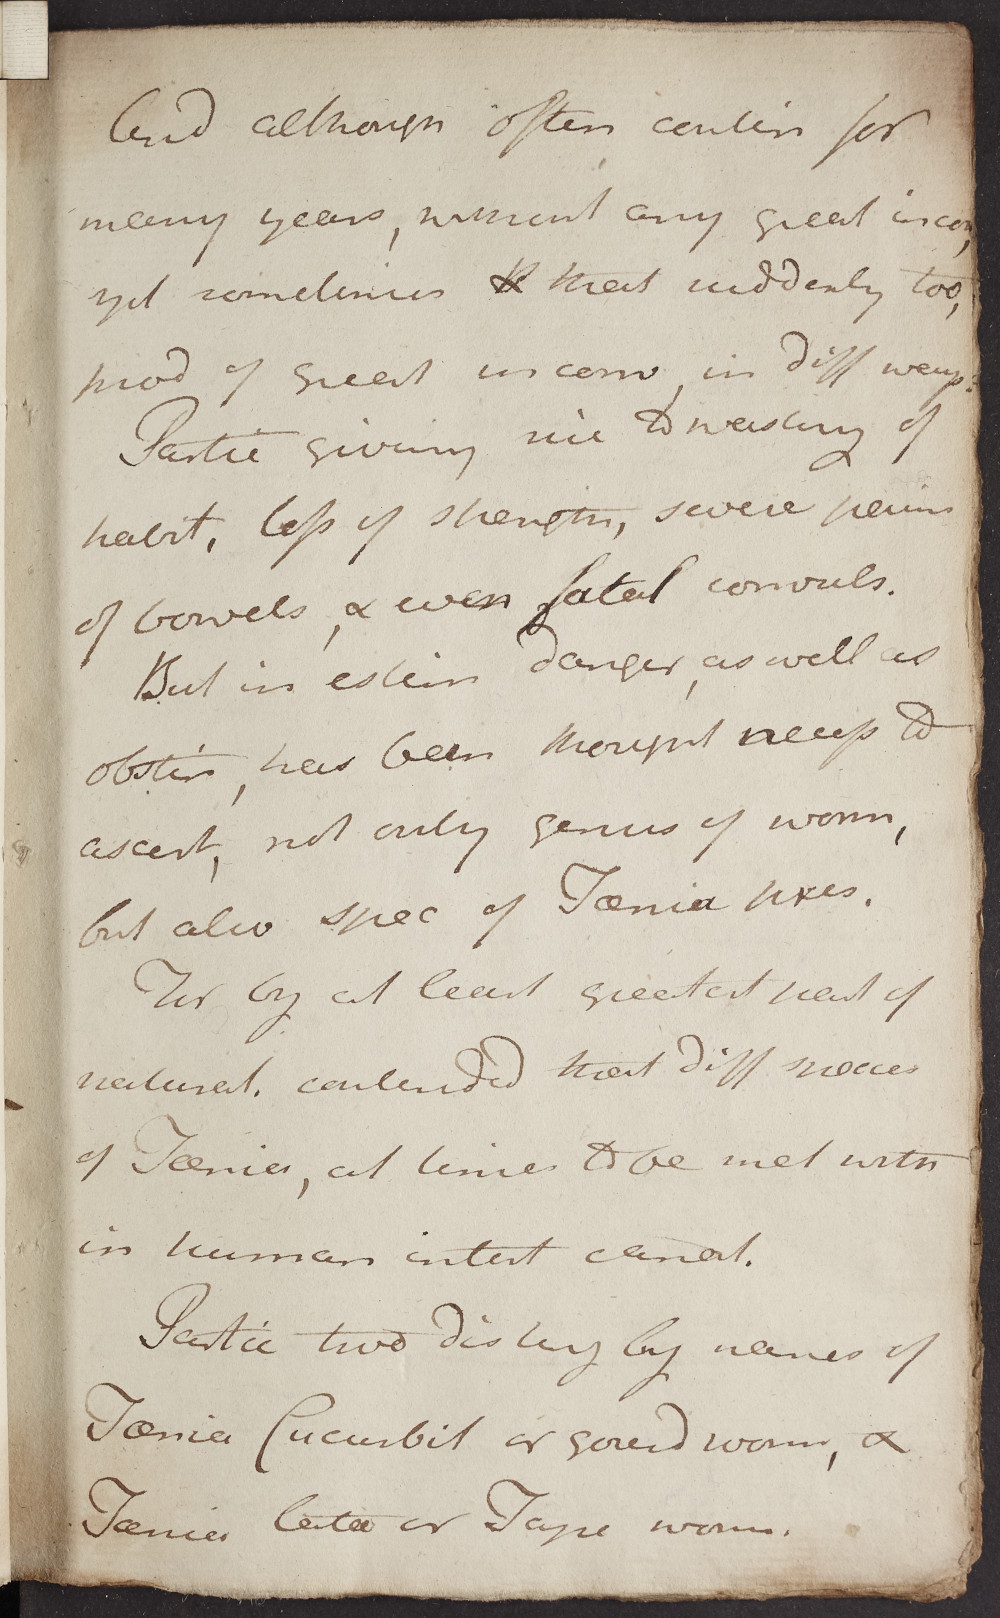 And although often contin for
many years, without any great incon,
yet sometimes & that suddenly too,
prod of great inconv, in diff ways.
Partic giving rise to wasting of
habit, loss of strength, severe pains
of bowels, & even fatal convuls.
But in estim danger, as well as
obstin, has been thought necess to
ascert, not only genus of worm,
but also spec of Tænia pres.
For by at least greatest part of
naturat. contended that diff species
of Tænia, at times to be met with
in human intest canal.
Partic two disting by names of
Tænia Cucurbit or gourd worm, &
Tænia lata or Tape worm.